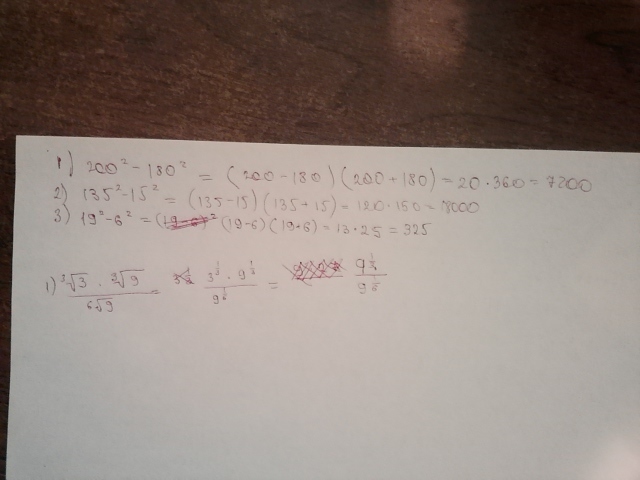 1) 200² - 180² = (200 - 180)(200 + 180) = 20 · 360 = 7200
2) 135² - 15² = (135 - 15)(135 + 15) = 120 · 150 = 18000
3) 19² - 6² = (19 - 6)(19 + 6) = 13 · 25 = 325
1) ∛3 · ∛9 / ⁶√9 = 3^(1/3) · 9^(1/3) / 9^(1/6) =